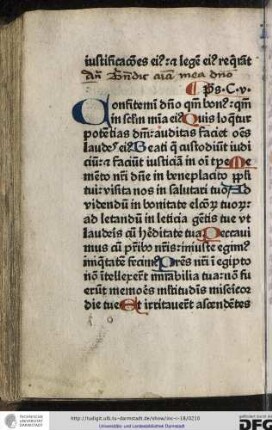 iustificacões ei⁹: ⁊ legē ei⁹ reqrāt
Añ Bñdic aīa mea dño
p̄s. C. v.
Confitemi dño qm̄ bon⁹: qm̄
in sclm mīa ei⁹ Quis loq̄tur
potētias dm̄: auditas faciet oēs
laudes ei⁹ Beati q̄ custodiūt iudi
ciū: ⁊ faciūt iusticiā in oī tpe Me
mēto nr̄i dñe in beneplacito ppl̄i
tui: visita nos in salutari tuo Ad
videndū in bonitate elcōꝝ tuoꝝ:
ad letandū in leticia gētis tue vt
lauderis cū hēditate tua Peccaui
mus cū prībꝰ nr̄is: iniuste egim⁹
iniq̄tatē fecim⁹ Pr̄es nr̄i ī egipto
nō ītellexer̄t mirabilia tua: nō fu
erūt memōes ml̄titudīs misericor
die tue Et irritauer̄t ascendētes
http://tudigit.ulb.tu-darmstadt.de/show/inc-i-18/0210
Universitäts- und Landesbibliothek Darmstadt